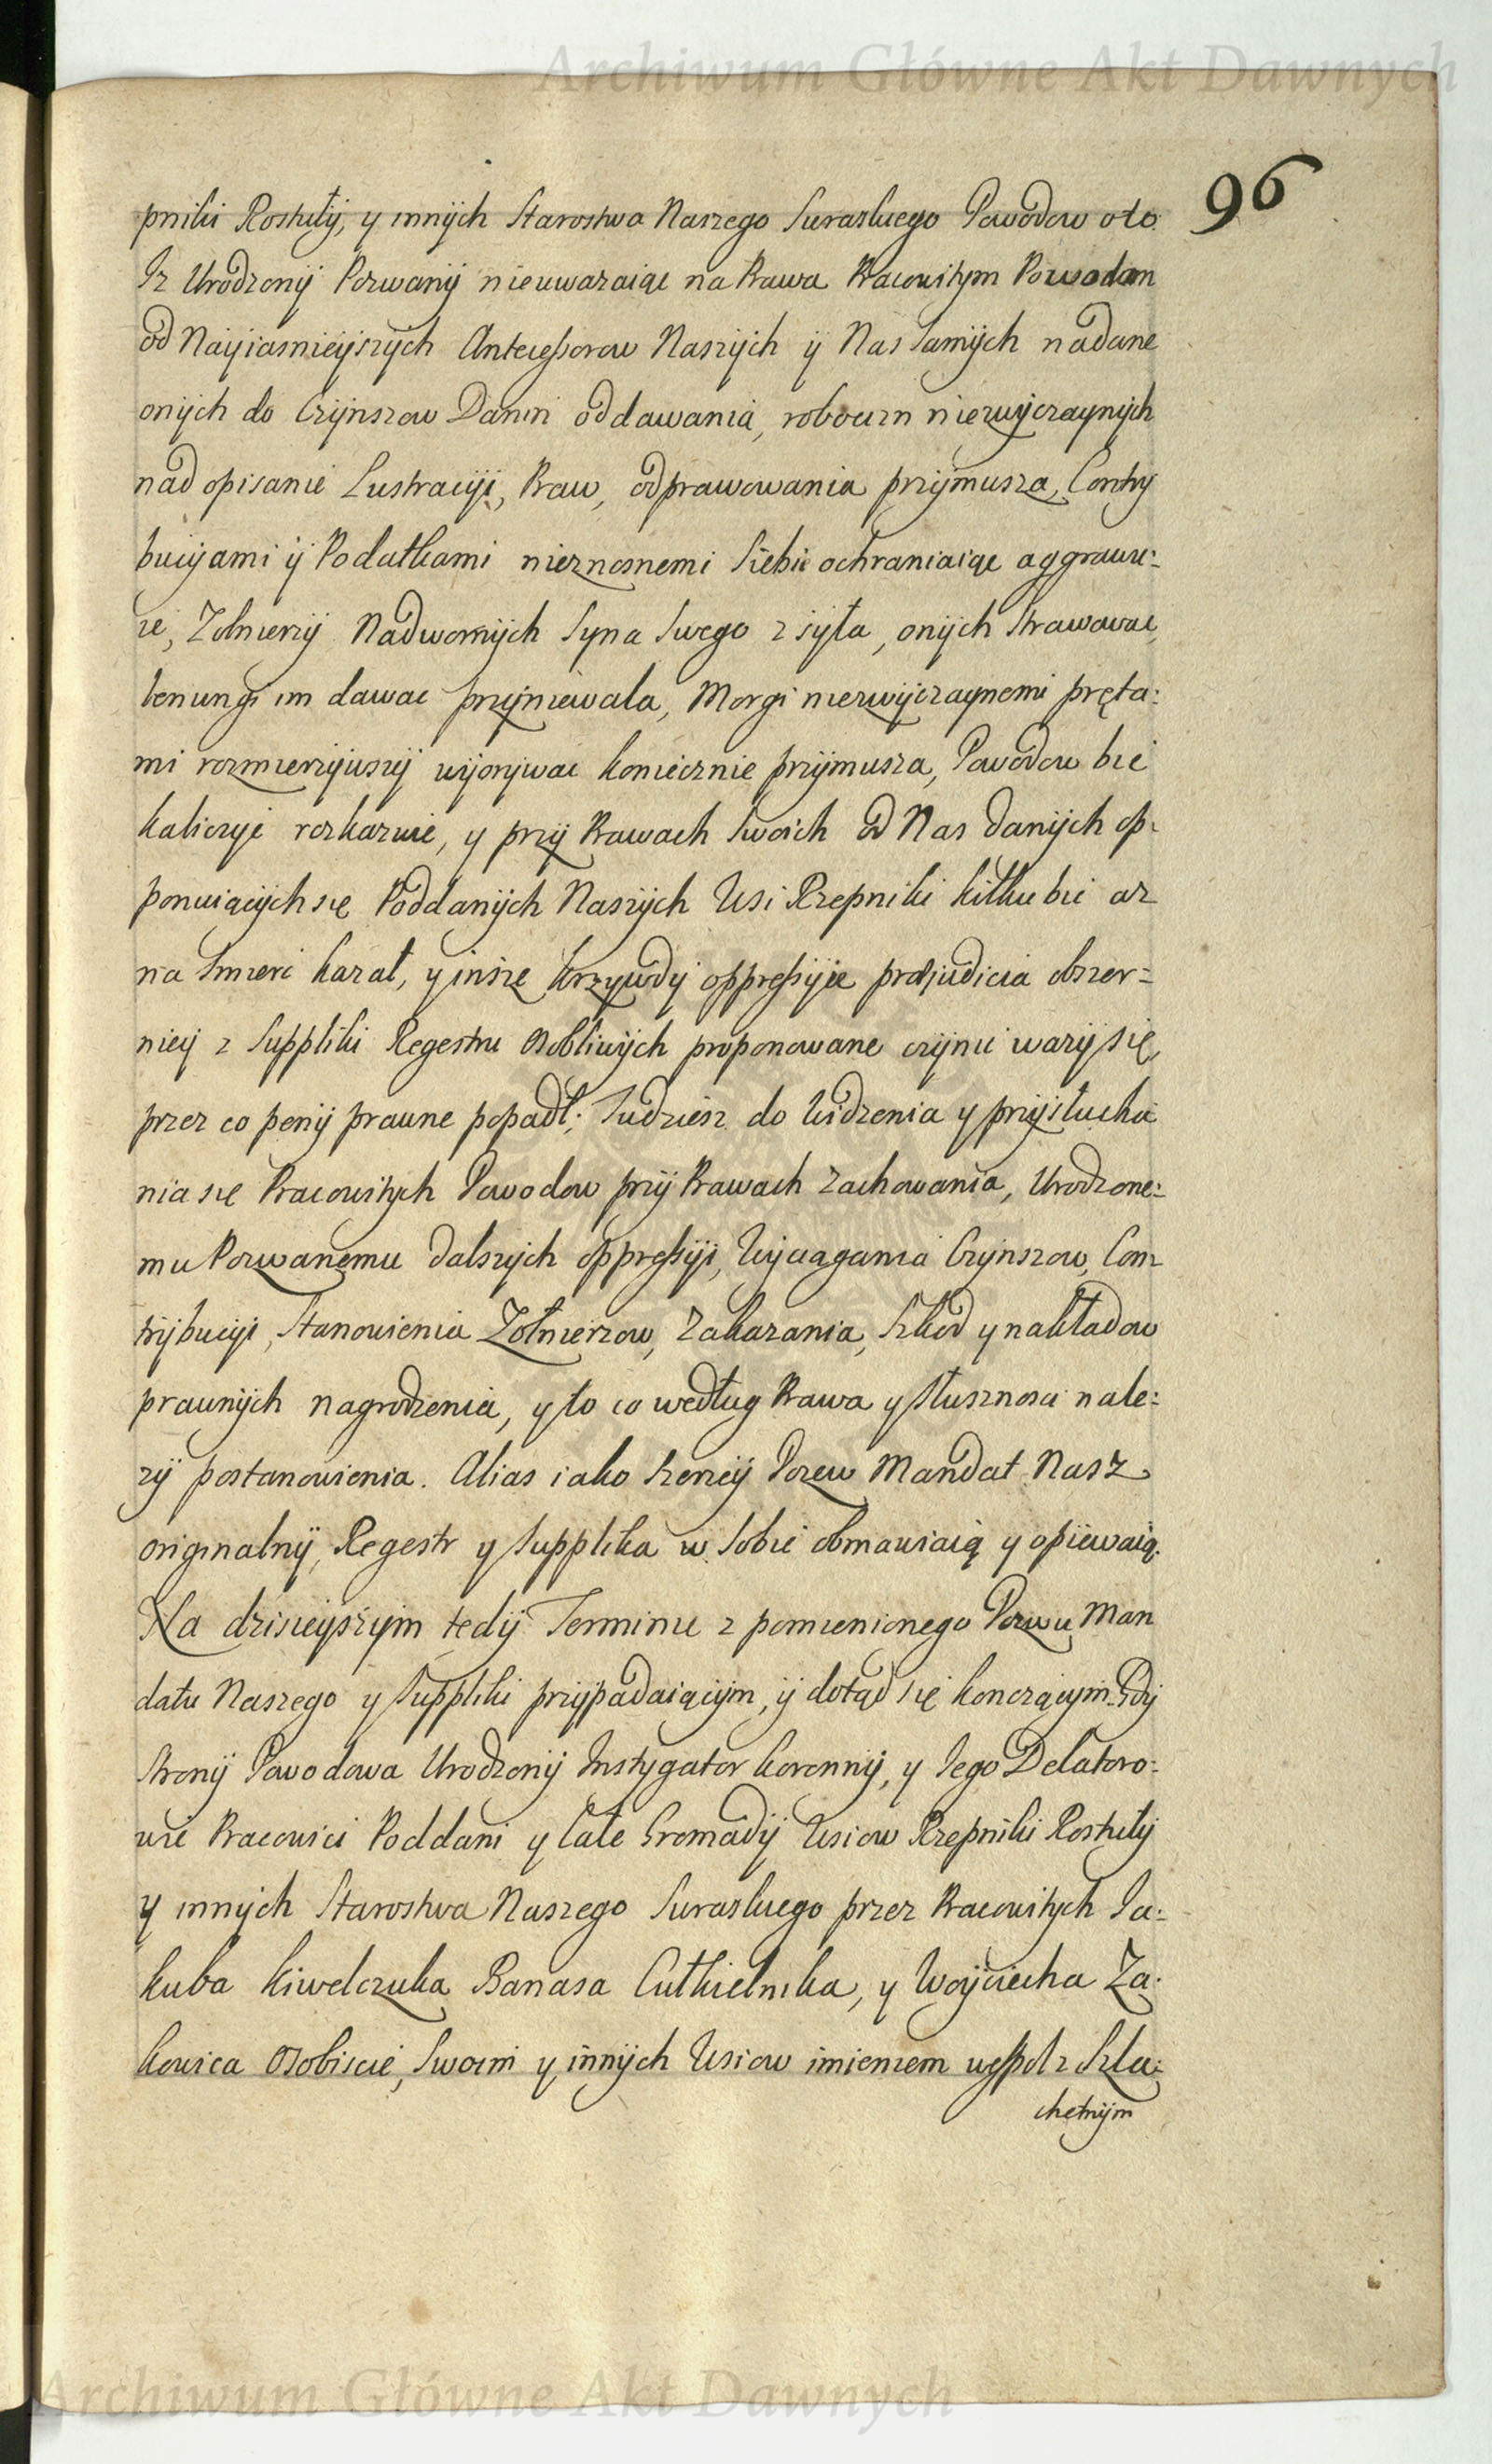 Archiwum Główne Akt Dawnych
96
pniki Rostuły, y innych Starostwa Naszego Suraskiego Powodow oto.
Iz Urodzony Pozwany nieuwazaiąc na Prawa Pracowitym Powodom
od Nayiasnieyszych Antecessorow Naszych y Nas Samych nadane
onych do Czynszow Danin oddawania, robocizn niezwyczaynych
nad opisanie Lustracyi, Praw, odprawowania przymusza, Contry
bucyami y Podatkami nieznosnemi Siebie ochraniaiąc aggrawu:
ie, Zolnierzy Nadwornych Syna Swego zsyła, onych Strawować,
lenungi im dawac przyniewala, Morgi niezwyczaynemi pręta:
mi rozmierzywszy wyorywac koniecznie przymusza, Powodow bie
kaliczyc rozkazuie, y przy Prawach Swoich od Nas danych op:
ponuiących się Poddanych Naszych Wsi Rzepniki kilku bic az
na Smierc kazał, y insze krzywdy oppressyie praejudicia obszer=
niey z Suppliki Regestru osobliwych proponowane czynic wazy się,
przez co peny prawne popadł; Tudziesz do Widzenia y przysłucha
nia się Pracowitych Powodow przy Prawach zachowania, Urodzone:
mu Pozwanemu dalszych oppressyi, Wyciągania Czynszow, Con
trybucyi, Stanowienia Zołnierzow, Zakazania, Szkod y nakładow
prawnych nagrodzenia, y to co według Prawa y Słusznosci nale:
zy postanowienia. Alias iako szerzey Pozew Mandat Nasz
originalny, Regestr y Supplika w Sobie obmawiaią y opiewaią.
Na dzisieyszym tedy Terminie z pomienionego Pozwu Man
datu Naszego y Suppliki przypadaiącym, y dotąd się konczącym. Gdy
Strony Powodowa Urodzony Instygator koronny, y Iego Delatoro:
wie Pracowici Poddani y Całe Gromady Wsiow Rzepniki Rostuły
y innych Starostwa Naszego Suraskiego przez Pracowitych Ia:
kuba Kiwelczuka Banasa Cutkielnika, y Woyciecha Za:
kowica osobiscie, Swoim y innych Wsiow imieniem wespol z Szla:
chetnym
Archiwum Główne Akt Dawnych